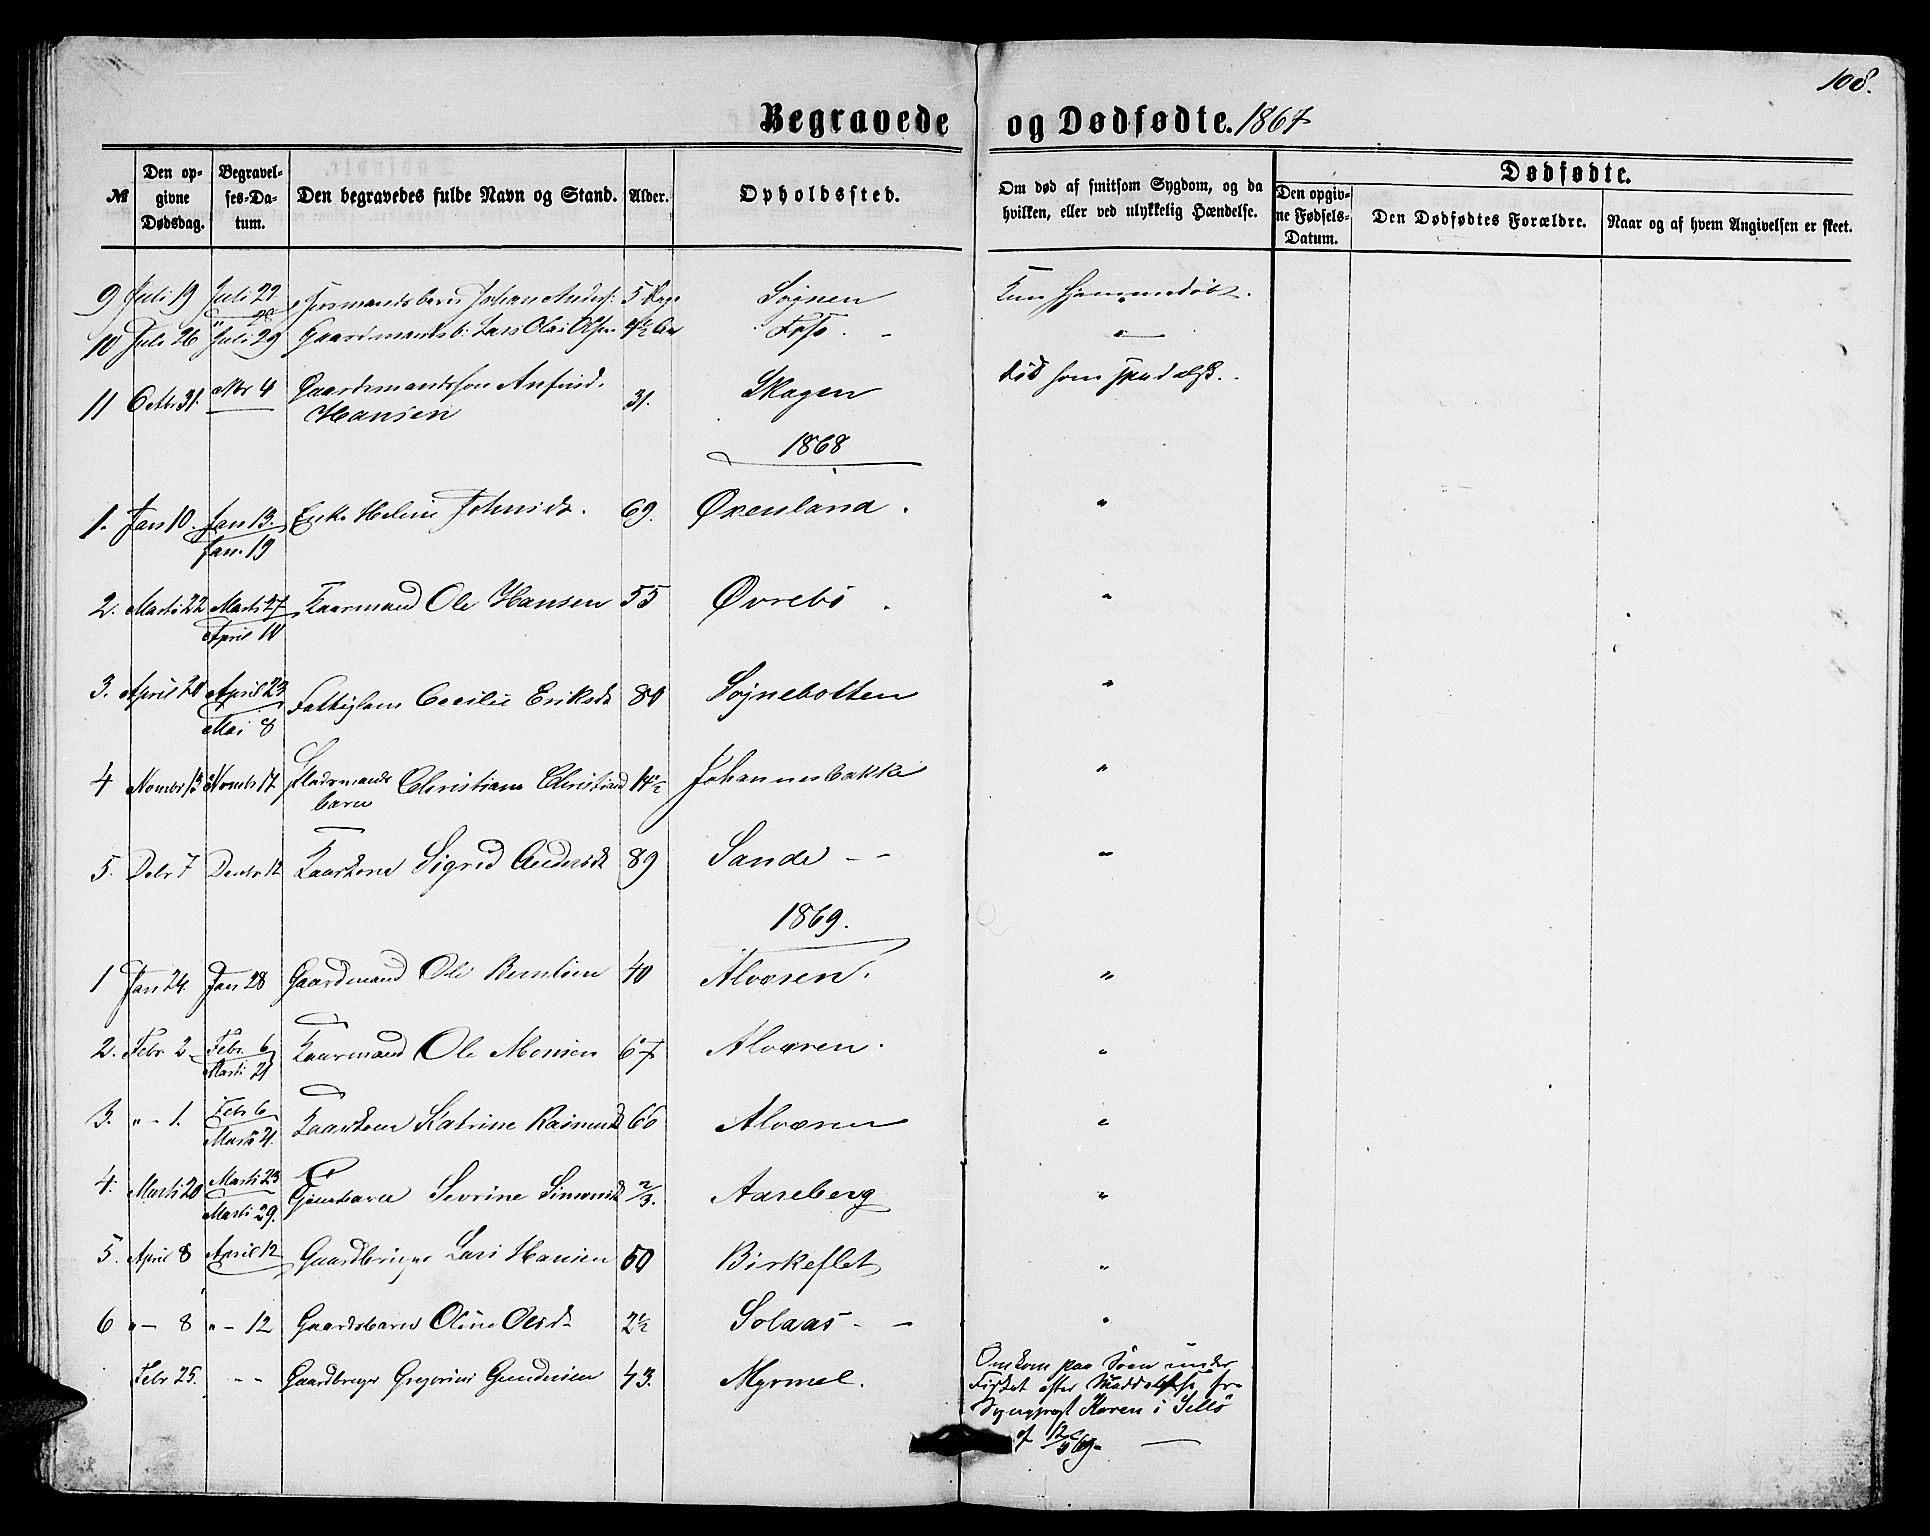 108.
Begravede og Dødfødte. 1867
№ Den opgivne Dødsdag. Begravelses-Datum. Den begravedes fulde Navn og Stand. Alder. Opholdssted. Om død af smitsom Sygdom, og da hvilken, eller ved ulykkelig Hændelse. Dødfødte.
Den opgivne Fødsels-Datum. Den Dødfødtes Forældre. Naar og af hvem Angivelsen er skeet.
9 Juli 19 Juli 22 Johan Anders: 5 Dage Søjnen Kun hjemmedøbt.
10 Juli 26 Juli 29 Gaardmandsb: Lars Olai Olsen 4½ "
11 Octbr 31. Nbr 4 Gaardmandsson Anfind. Hansen 31. Skagen død som
1868
1. Jan 10. Jan 13. Jan. 19 Enke Heline Johnsdt. 69. Øxenland. "
2. Marts 22 Marts 27 April 10 Kaarmand Ole Hansen 55 Øvrebö. "
3. April 20 April 23 Mai 8 Fattiglem Cecilie Eriksdt 80 Søjnebotten "
4 Novmbr 13 Novmbr 17 Pladsmands barn Christiane Christiansd 14½ Johannesbakke "
5. Debr 7 Decbr 12 Kaarkone Sigrid Andersdt 89 Sande - - "
1869.
1 Jan 24. Jan 28 Gaardmand Ole Berntsen 40 Alværen. "
2. Febr 2 Febr 6 Marts 21 Kaarmand Ole Monsen 67 Alværen. "
3. " - 1. Febr 6 Marts 21. Kaarkone Katrine Rasmusdt 66 Alværen "
4. Marts 20 Marts 23 Marts 29. Sevrine Simonsdt 2/3. Aaseberg "
5. April 8 April 12 Gaardbruger Lars Hansen 50 Birkeflet "
6 " - 8 " - 12 Gaardsbarn Oline Olsdt 2½ Solaas - - "
Febr 25. " - Gaardbruger Gregorius Gundersen 43. Myrmel. Omkom paa Søen under
Fisket efter Meddelelse fra
Sognepræst Koren i Sellö
af 12/5 69 -